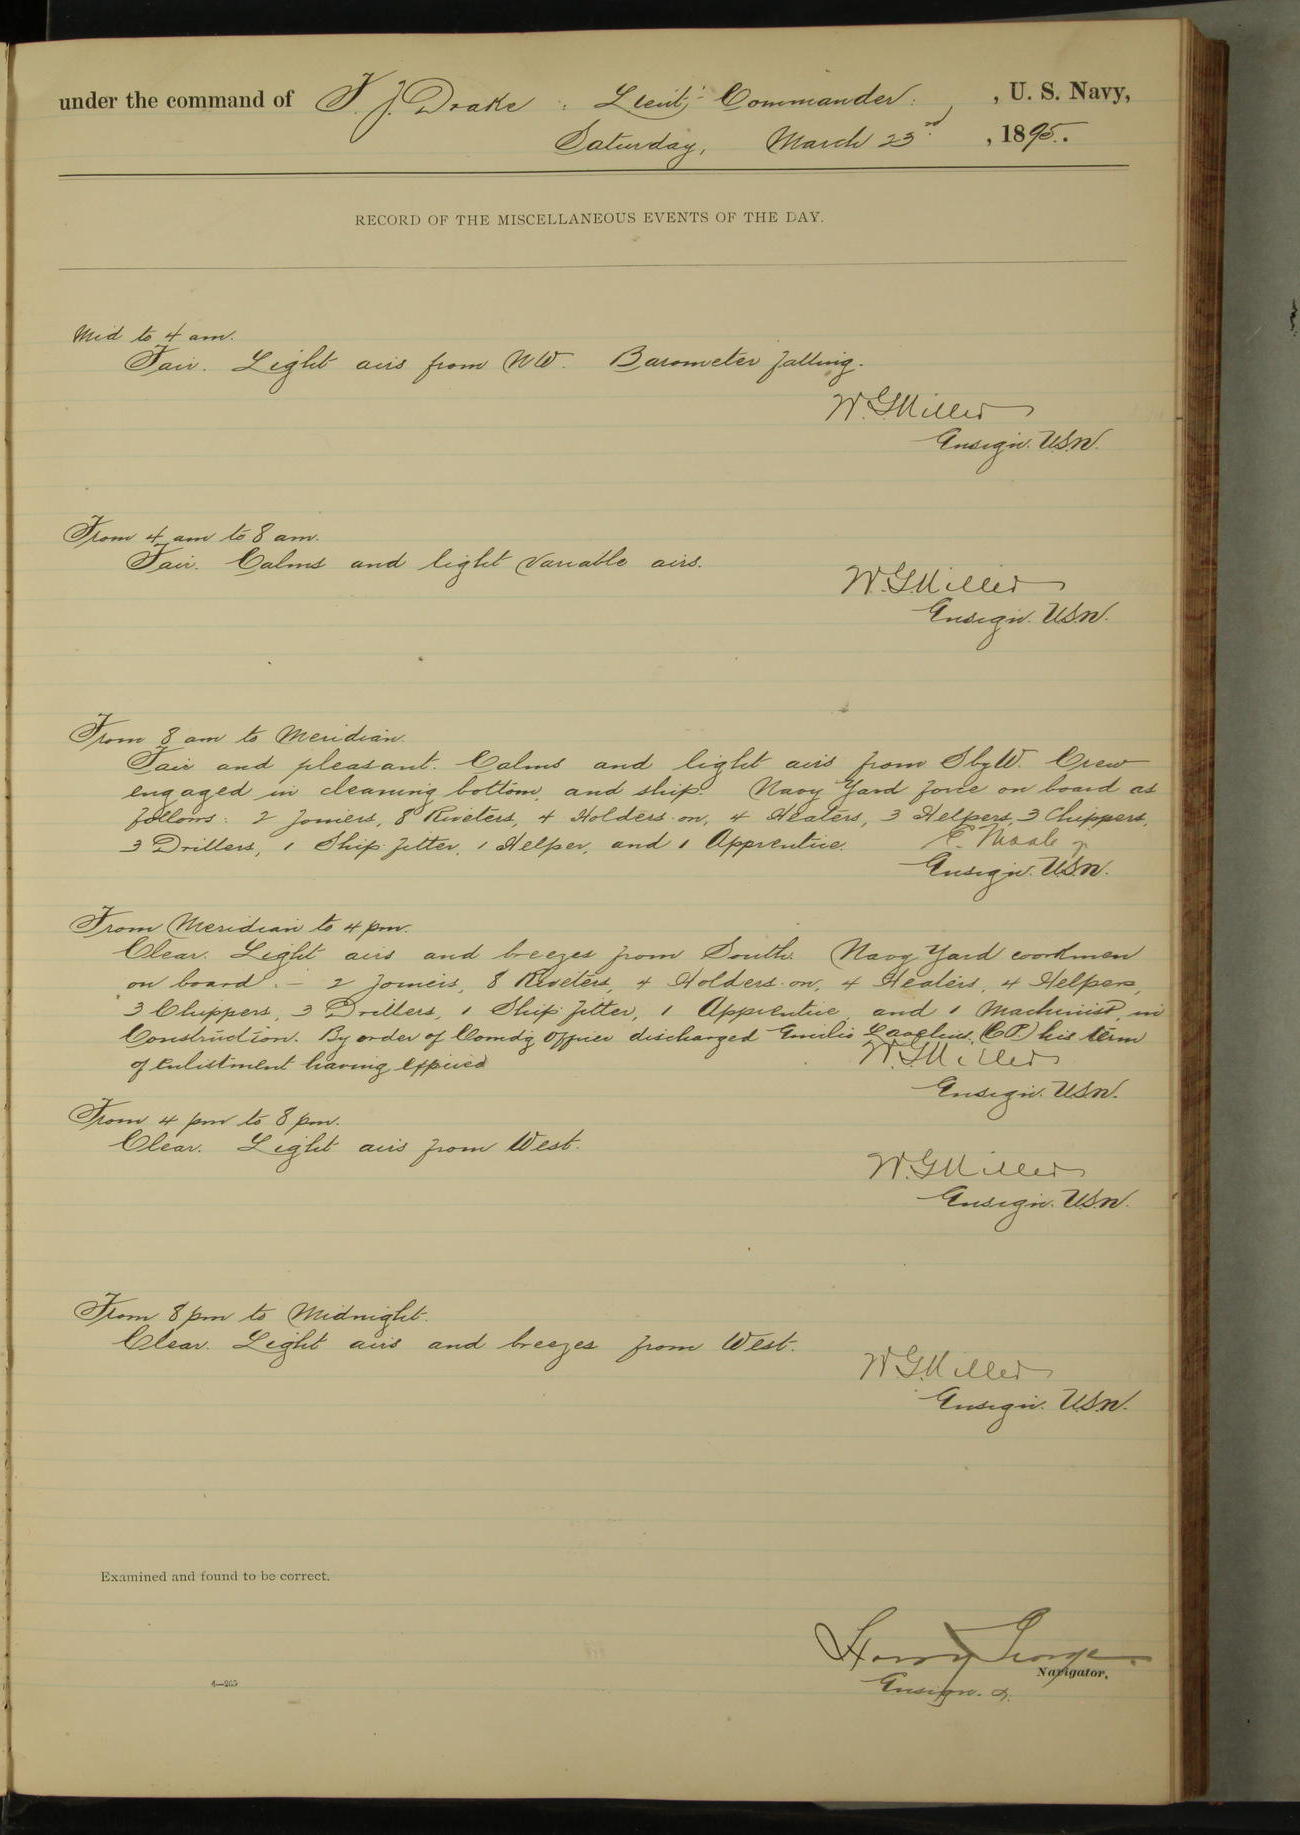 under the command of F. J. Drake : Lieut; Commander. , U. S. Navy,
Saturday, March 23rd , 1895.
RECORD OF THE MISCELLANEOUS EVENTS OF THE DAY.
Mid to 4 am.
Fair. Light airs from NW. Barometer falling.
W. G. Miller
Ensign. U.S.N.
From 4 am to 8 am.
Fair. Calms and light variable airs.
W. G. Miller
Ensign. U.S.N.
From 8 am to Meridian.
Fair and pleasant. Calms and light airs from S by W. Crew
engaged in cleaning bottom, and ship. Navy Yard force on board as
follows: 2 Joiners, 8 Riveters, 4 Holders-on, 4 Heaters, 3 Helpers, 3 Chippers,
3 Drillers, 1 Ship fitter, 1 Helper, and 1 Apprentice.
E.
Ensign. U.S.N.
From Meridian to 4 pm.
Clear. Light airs and breezes from South. Navy Yard workmen
on board :- 2 Joiners, 8 Riveters, 4 Holders-on, 4 Heaters, 4 Helpers,
3 Chippers, 3 Drillers, 1 Ship fitter, 1 Apprentice, and 1 Machinist, in
Construction. By order of Comdg Officer discharged Emilio his term
of enlistment having expired
W. G. Miller
Ensign. U.S.N.
From 4 pm to 8 pm.
Clear. Light airs from West.
W. G. Miller
Ensign. U.S.N.
From 8 pm to Midnight.
Clear. Light airs and breezes from West.
W. G. Miller
Ensign. U.S.N.
Examined and found to be correct.
Harry George
Navigator.
Ensign. &
4—205